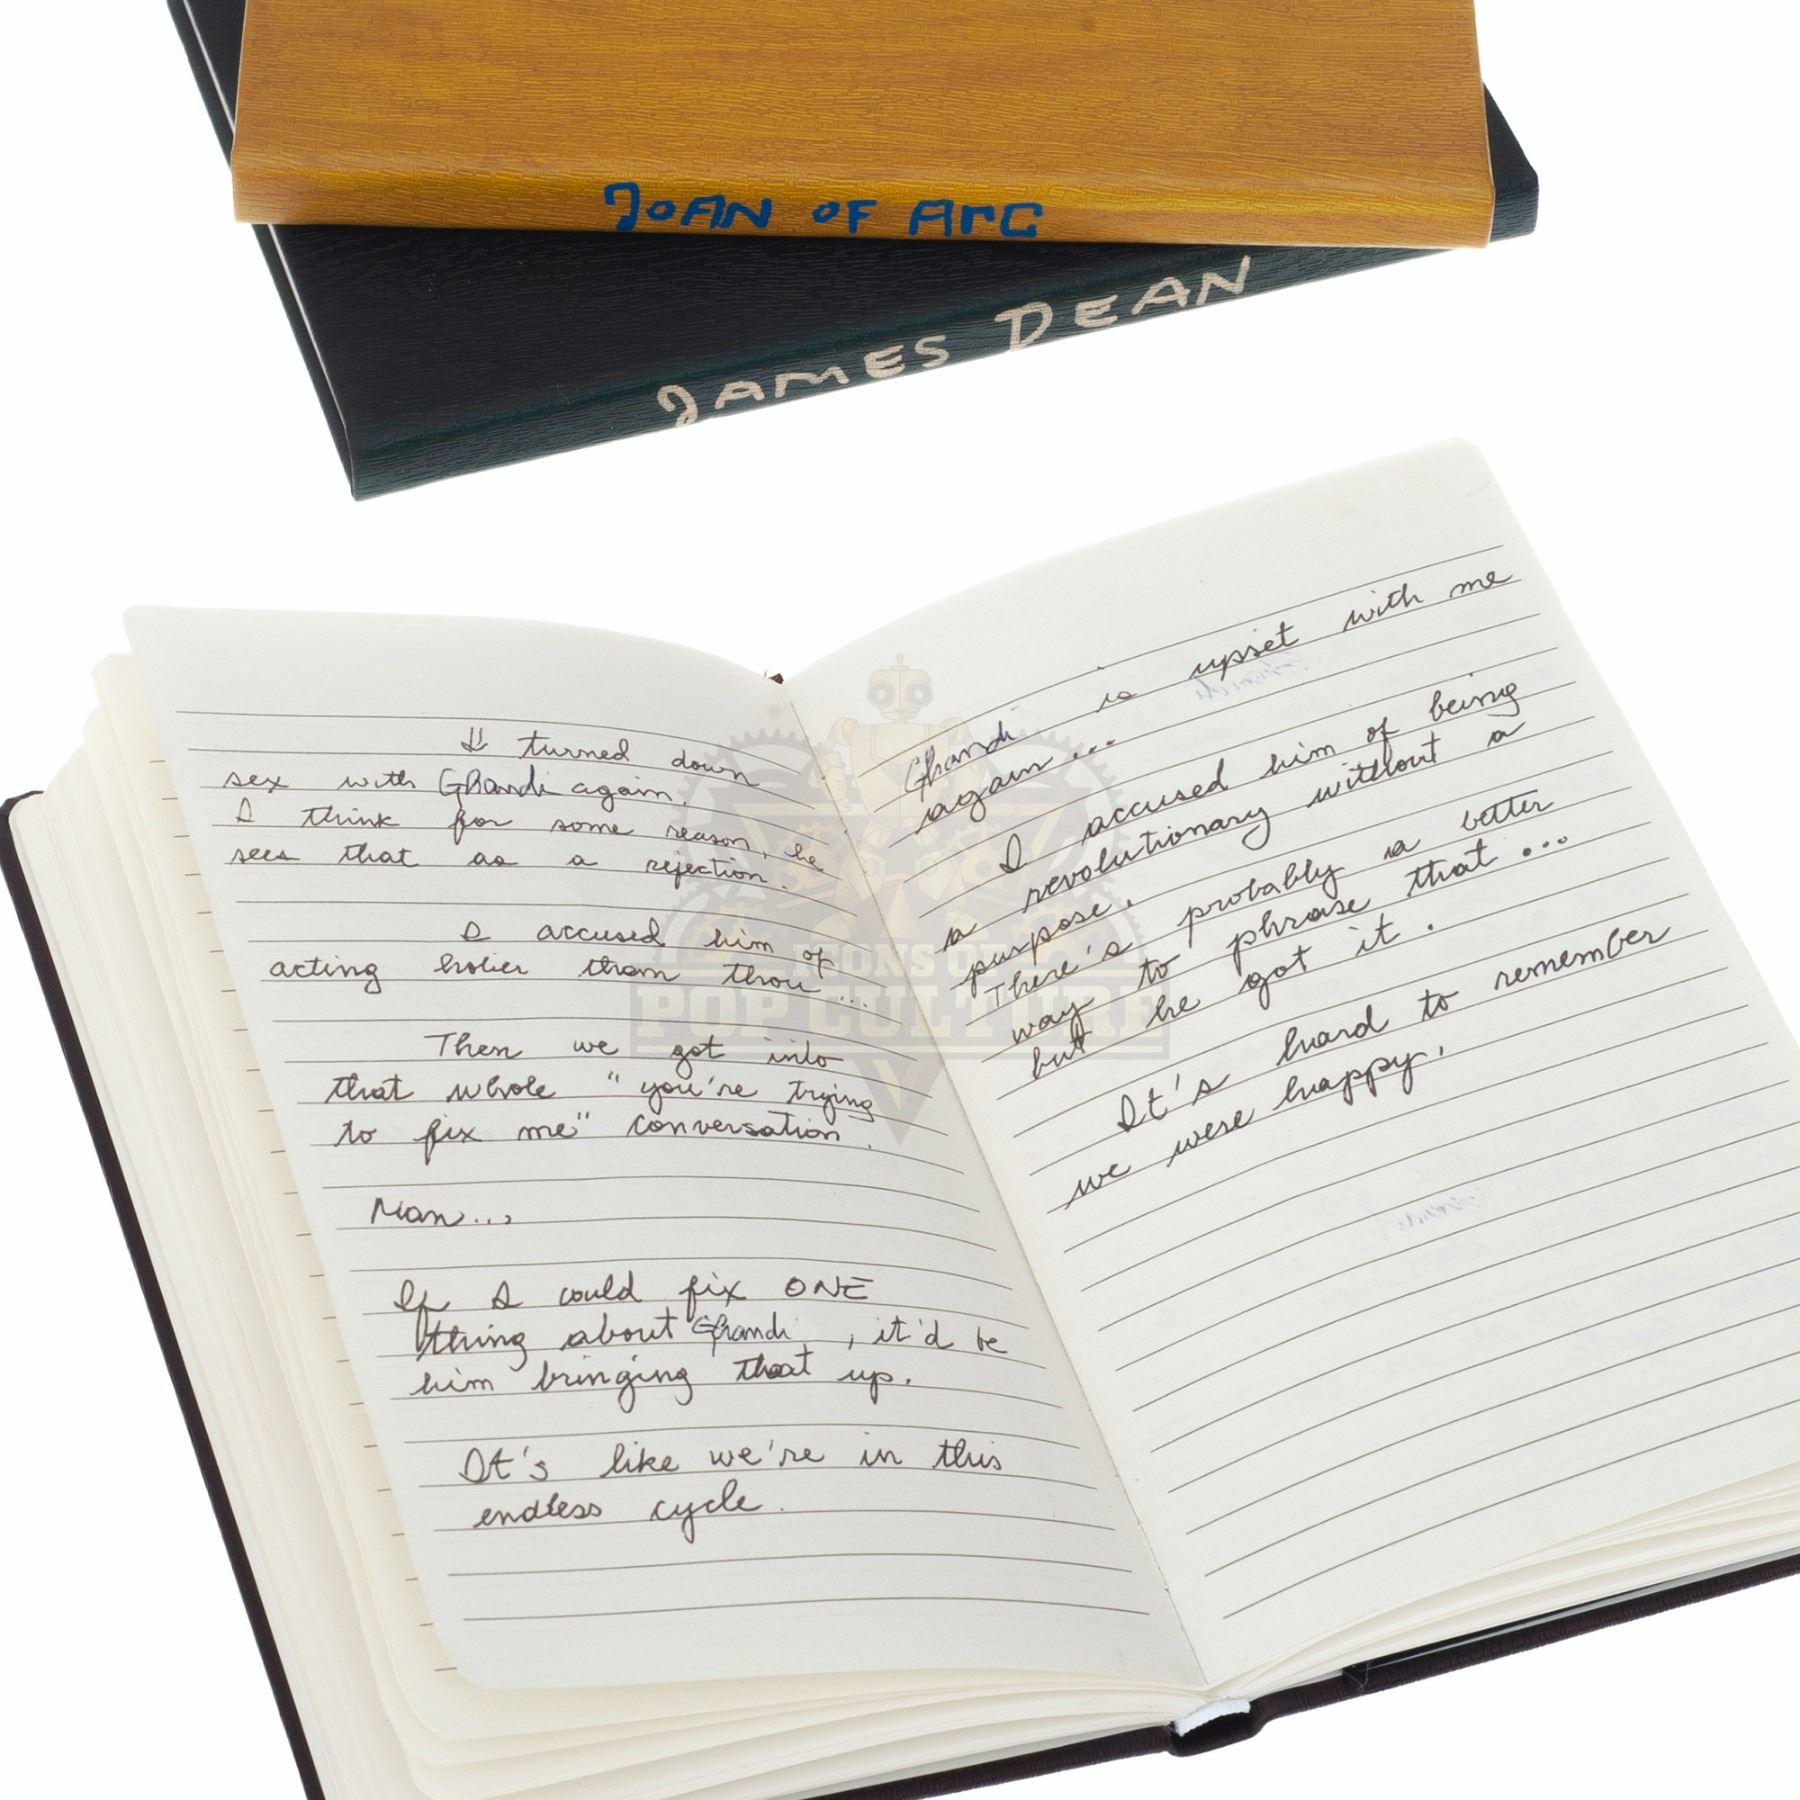 JOAN OF ArC
JAMES DEAN
I turned down
sex with Ghandi again.
I think for some reason, he
sees that as a rejection.
I accused him of
acting holier than thou...
Then we got into
that whole "you're trying
to fix me" conversation.
Man...
If I could fix ONE
thing about Ghandi, it'd be
him bringing that up.
It's like we're in this
endless cycle.
Ghandi is upset with me
again...
I accused him of being
a revolutionary without a
purpose.
There's probably a better
way to phrase that...
but he got it.
It's hard to remember
we were happy.
ICONS OF
POP CULTURE